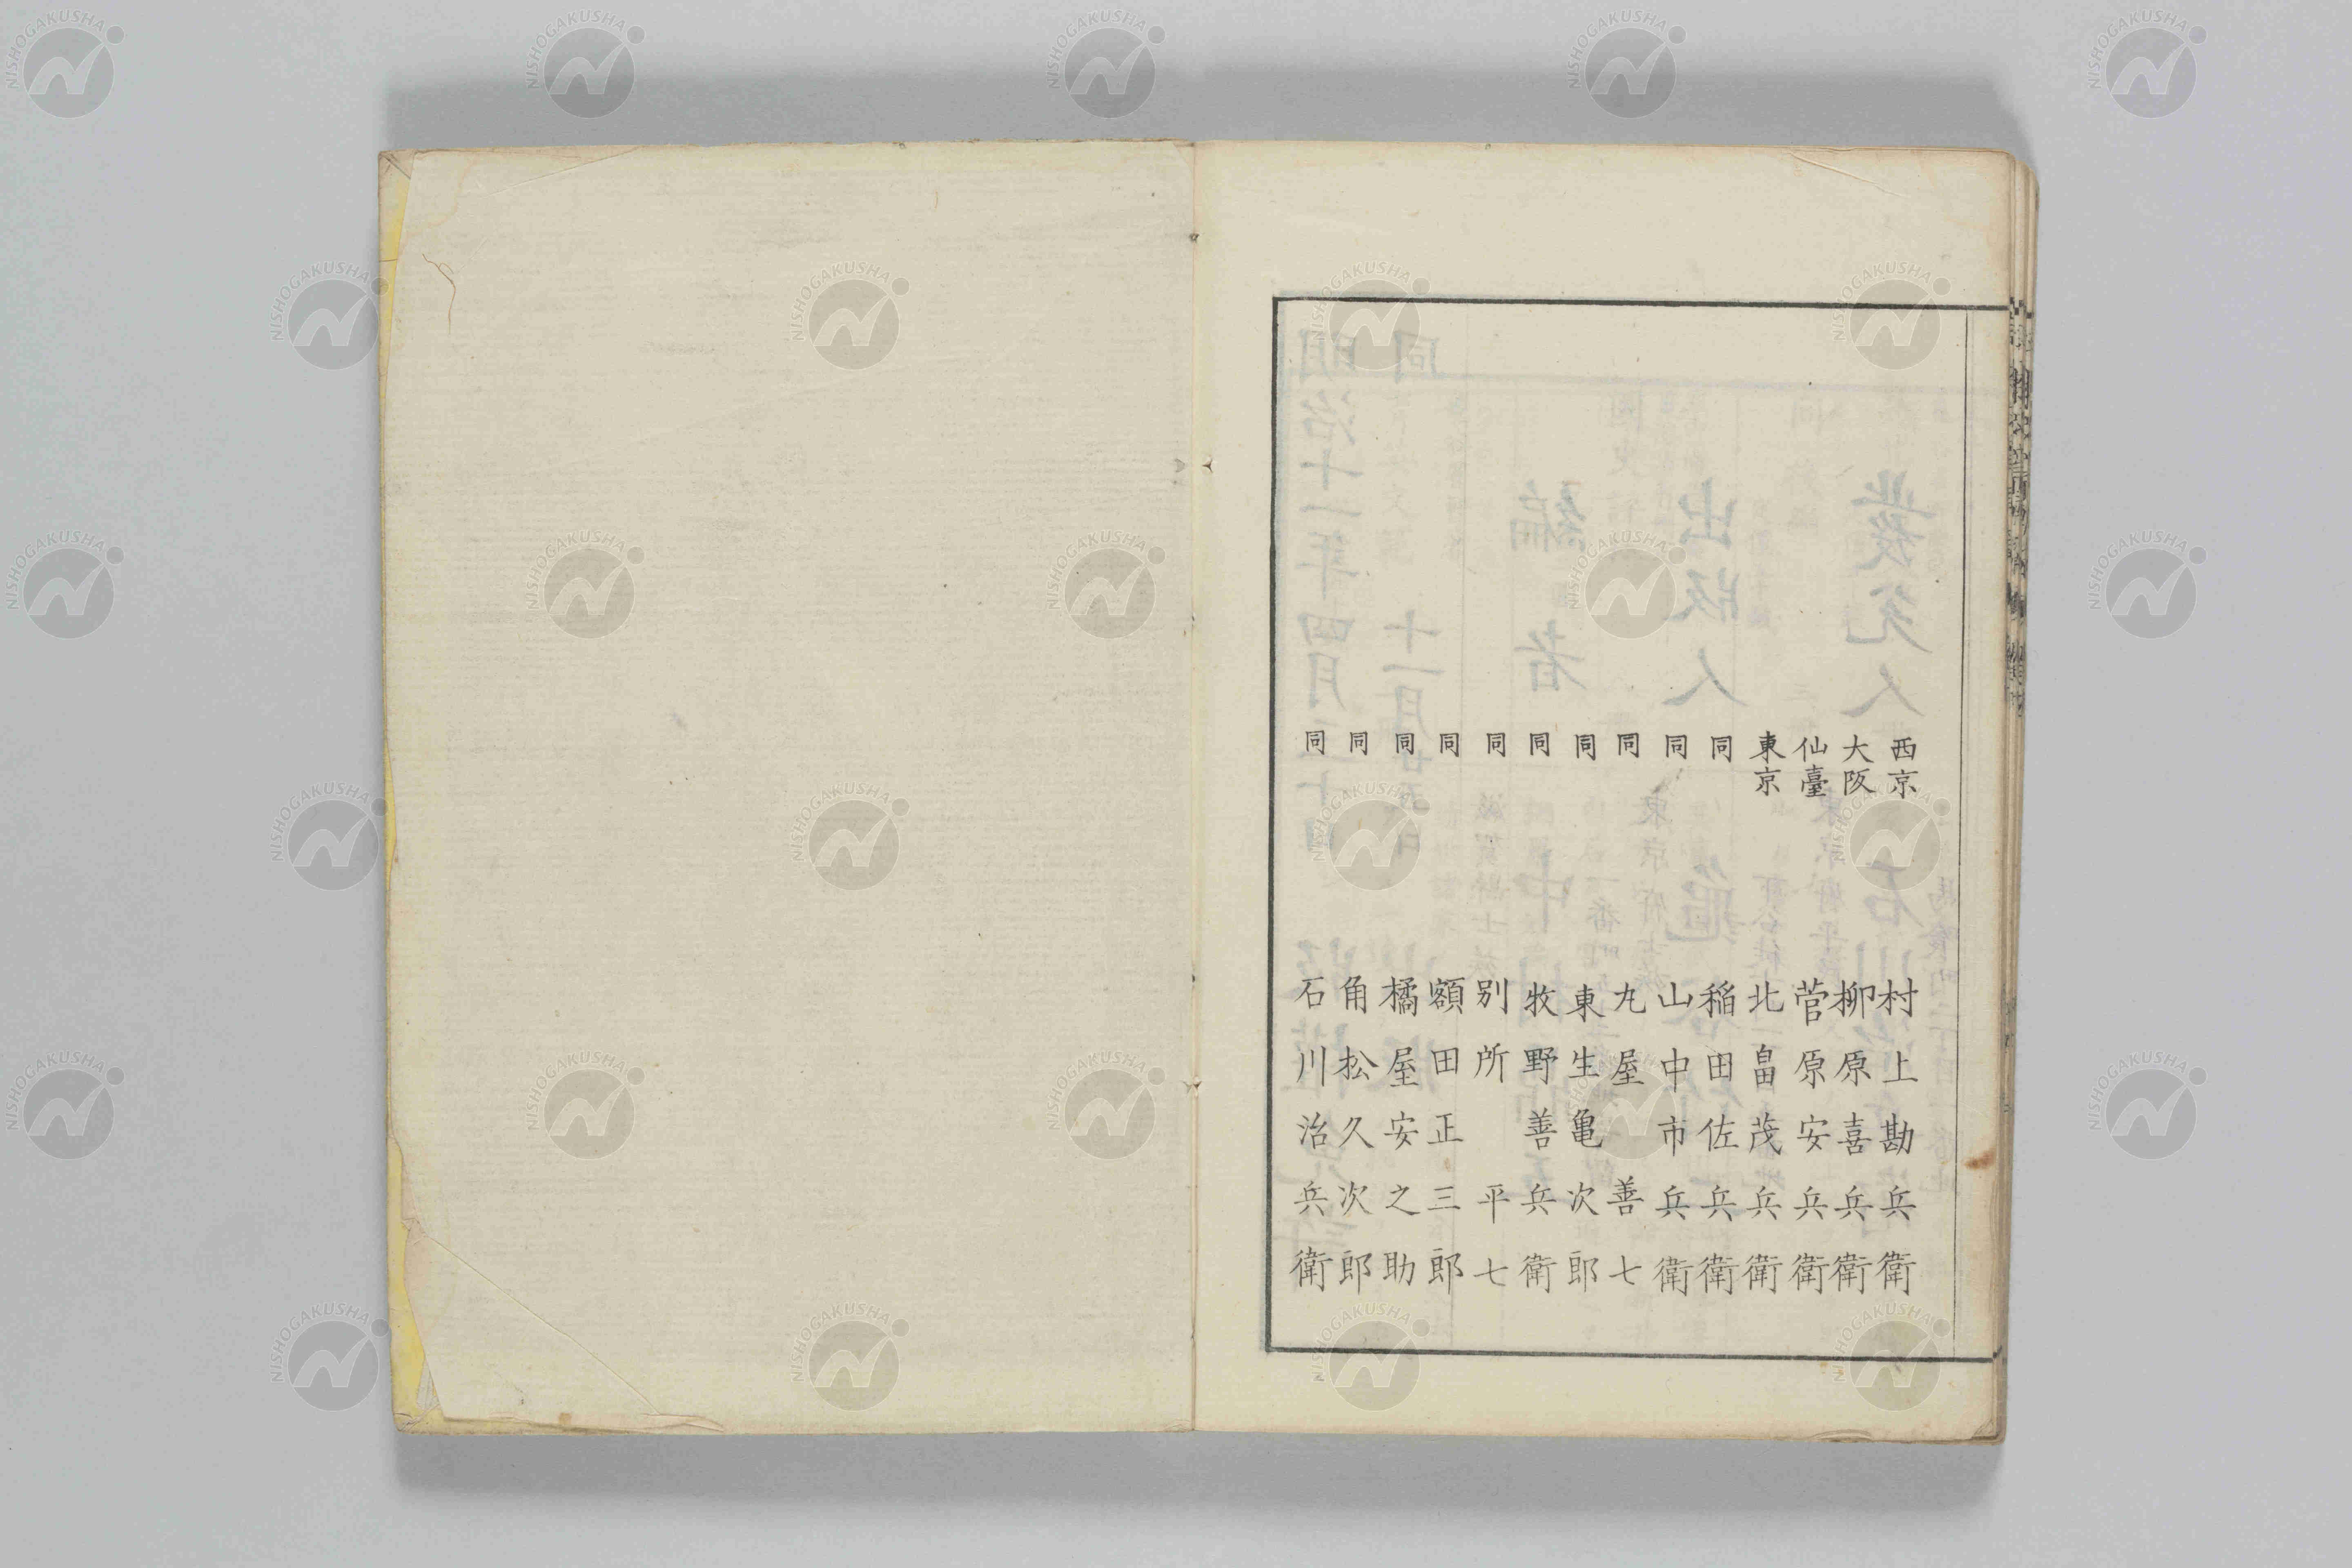 西京 村上勘兵衛
大阪 柳原喜兵衛
仙臺 菅原安兵衛
東京 北畠茂兵衛
同 稲田佐兵衛
同 山中市兵衛
同 丸屋善七
同 東生亀次郎
同 牧野善兵衛
同 別所平七
同 額田正三郎
同 橘屋安之助
同 角松久次郎
同 石川治兵衛
NISHOGAKUSHA